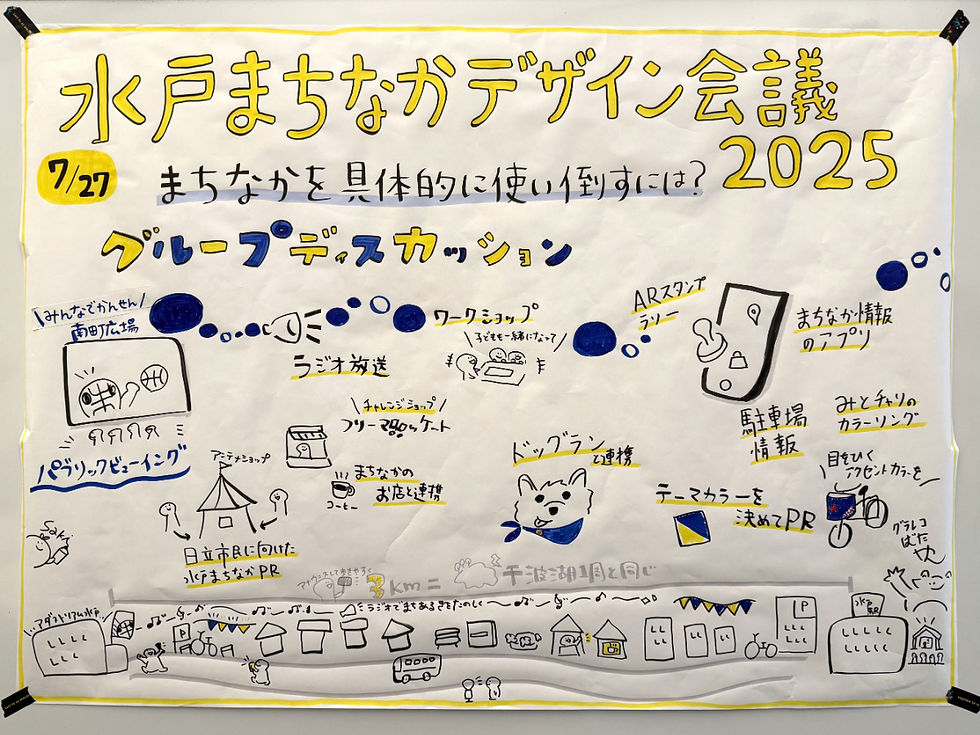 水戸まちなかデザイン会議
2025
7/27
まちなかを具体的に使い倒すには?
グループディスカッション
みんなでかんせん
南町広場
パブリックビューイング
ラジオ放送
ワークショップ
子どもも一緒になって
チャレンジショップ
フリーマーケット
まちなかの
お店と連携
コーヒー
アンテナショップ
日立市民に向けた
水戸まちなかPR
ドッグランと連携
ARスタンプ
ラリー
まちなか情報
のアプリ
駐車場
情報
みとチャリの
カラーリング
目をひく
アクセントカラーを
テーマカラーを
決めてPR
グラレコ
ばた
3km=千波湖1周と同じ
ラジオでまちあるきをたのしく
アダストリアみとアリーナ
P
P
水戸駅